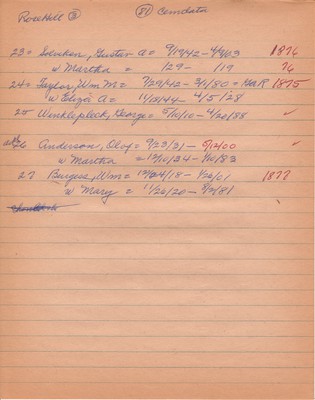 Rosehill ② 51 Cemdata
23 = Soenken, Gustav A = 9/19/42 - 4/4/03 1876
w Martha = 129 - 119 76
24 = Taylor, Wm M = 7/29/42 - 3/1/80 = GAR 1875
w Eliza A = 1/17/44 - 4/5/28
25 Winklepleck, George = 5/10/10 - 4/20/88 ✓
26 Anderson, Olof = 9/23/21 - 5/12/00 ✓
w Martha = 12/10/24 - 1/10/82
27 Burgess, Wm = 12/24/18 - 1/26/01 1877
w Mary = 11/20/20 - 8/2/81